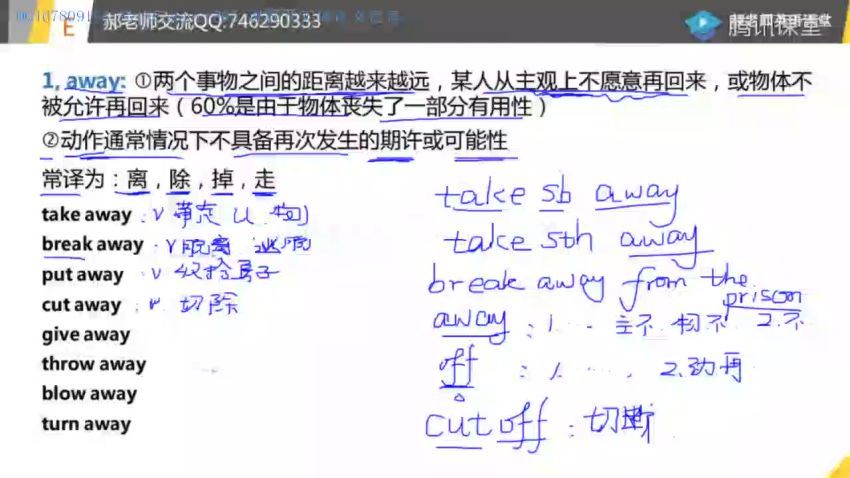 E 郝老师交流QQ:746290333
腾讯课堂
1, away: ①两个事物之间的距离越来越远，某人从主观上不愿意再回来，或物体不
被允许再回来（60%是由于物体丧失了一部分有用性）
②动作通常情况下不具备再次发生的期许或可能性
常译为：离，除，掉，走
take away : v 带走 (人 物)
break away · v 脱离 逃脱
put away : v 收拾房子
cut away : v 切除
give away
throw away
blow away
turn away
take sb away
take sth away
break away from the
prison
away : 1. ... 主不 物不 2.不
off : 1. ..... 2.动再
cut off : 切断